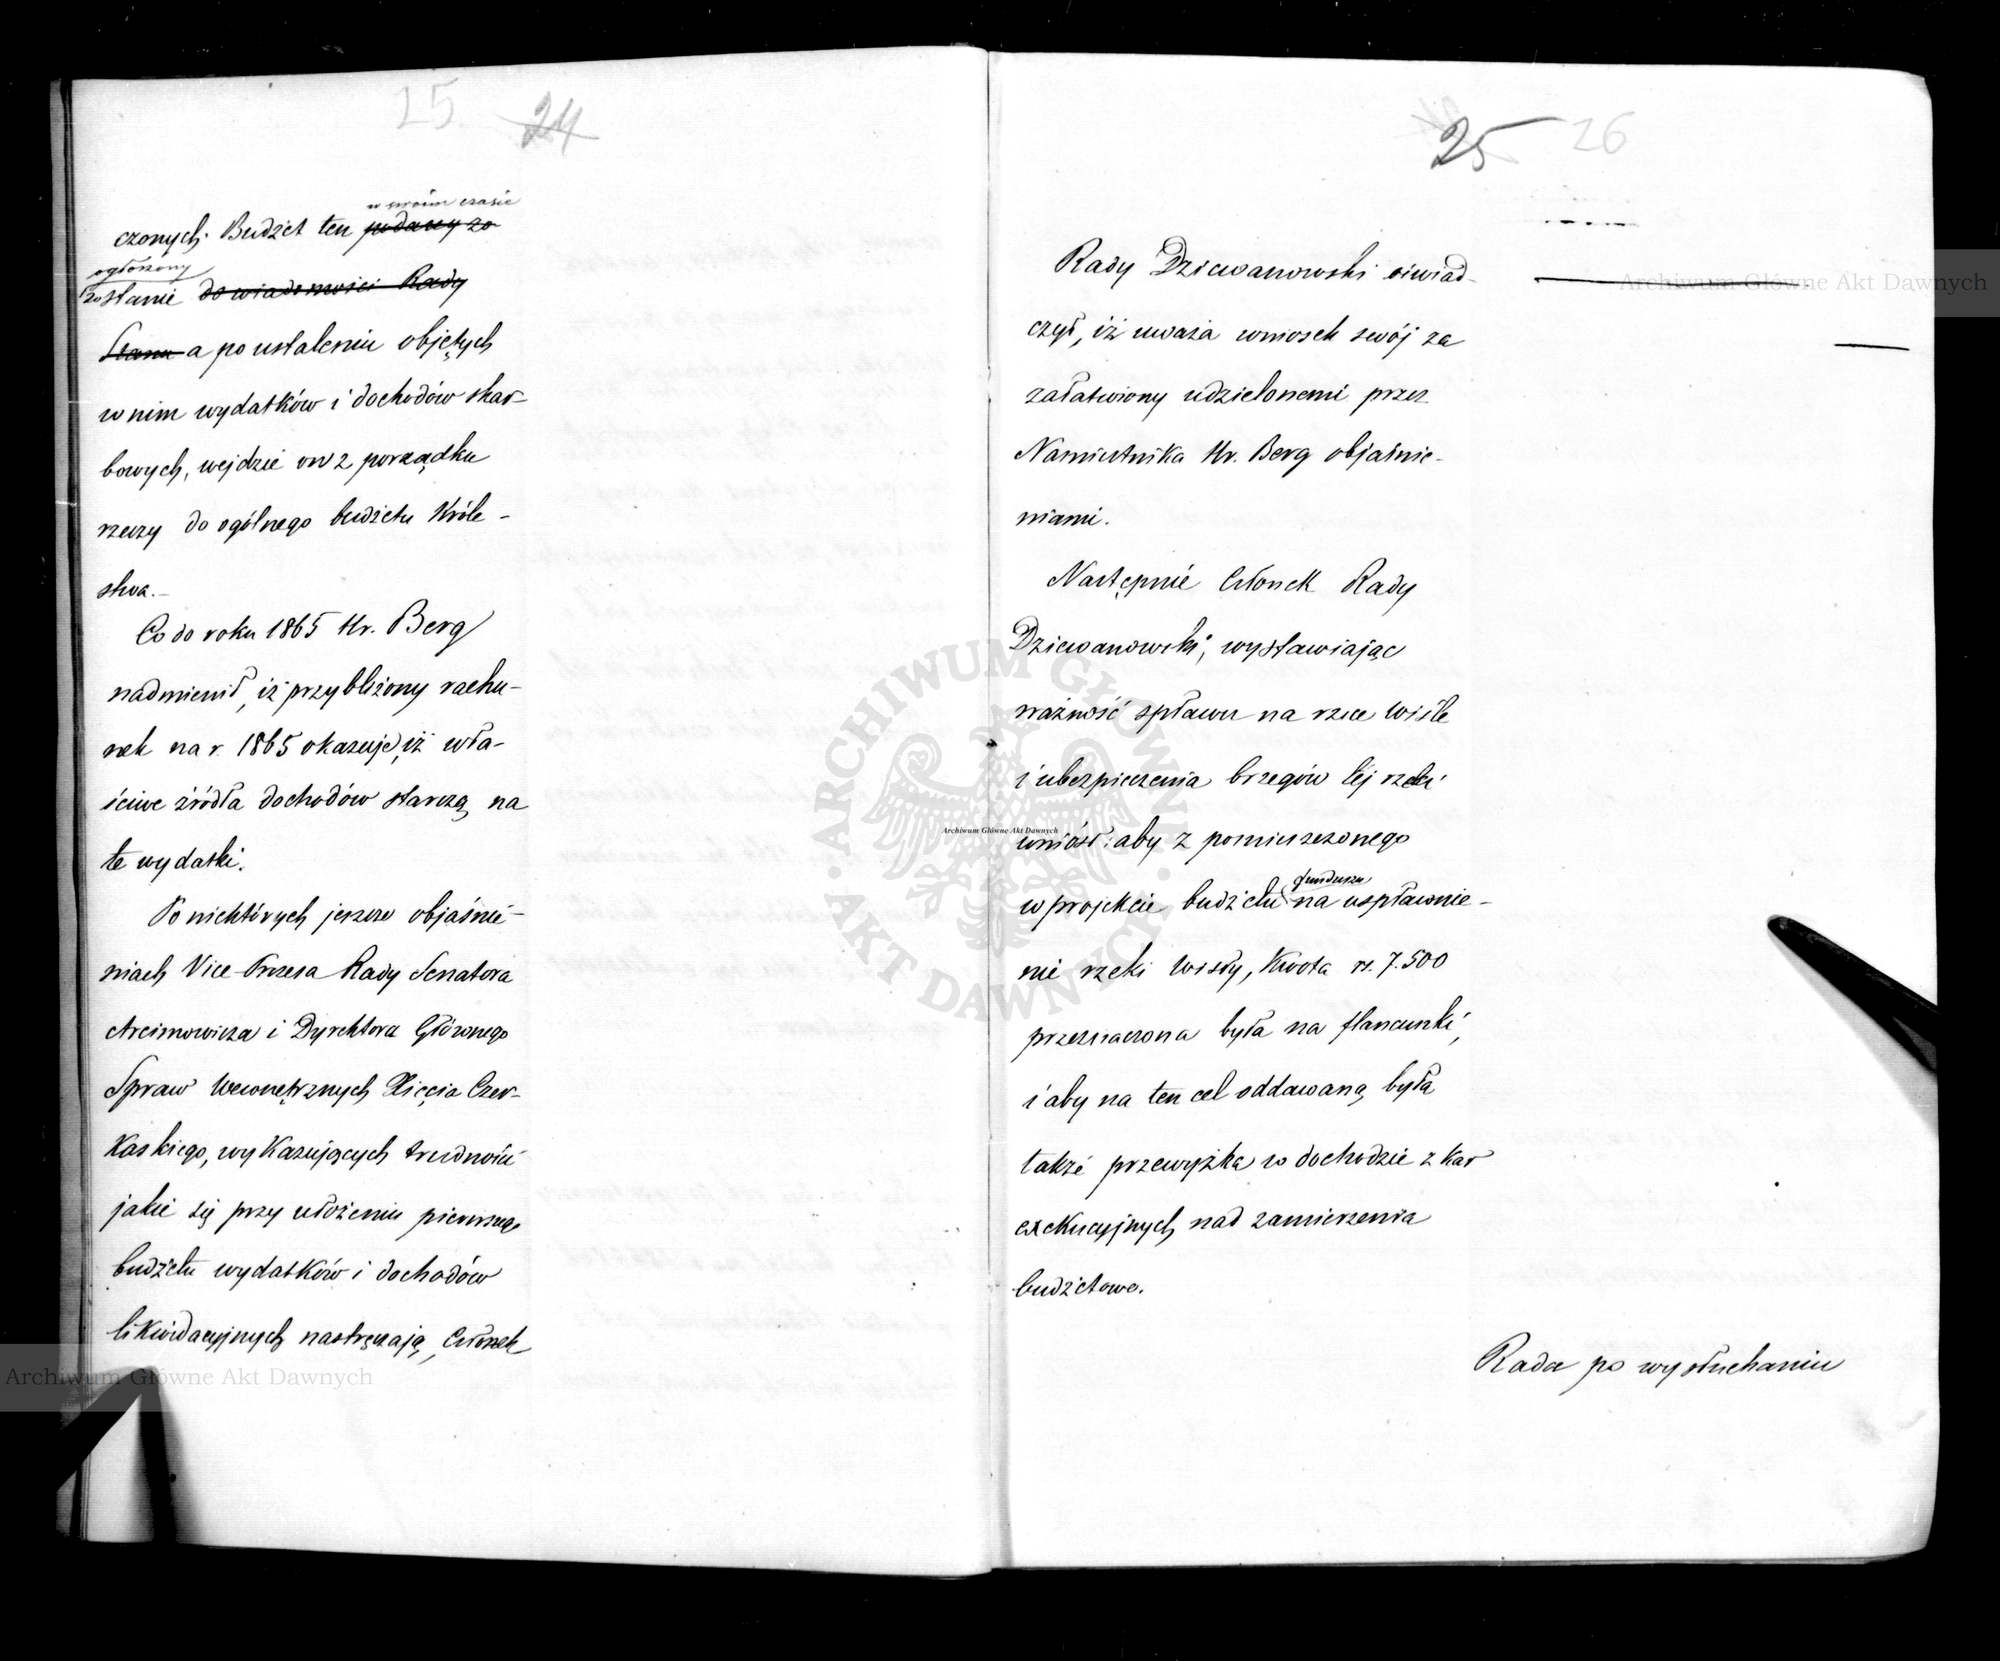 25 24
w swoim czasie
czonych. Budżet ten podany zo
ogłoszony
zostanie do wiadomości Rady
Stanu a po ustaleniu objętych
w nim wydatków i dochodów skar-
bowych, wejdzie on z porządku
rzeczy do ogólnego budżetu Króle-
stwa.-
Co do roku 1865 Hr. Berg
nadmienił, iż przybliżony rachu-
nek na r. 1865 okazuje, iż wła-
ściwe źródła dochodów starczą na
te wydatki.
Po niektórych jeszcze objaśnie-
niach Vice-Prezesa Rady Senatora
Arcimowicza i Dyrektora Głównego
Spraw Wewnętrznych Xięcia Czer-
kaskiego, wykazujących trudności
jakie się przy ułożeniu pierwszego
budżetu wydatków i dochodów
likwidacyjnych nastręczają, Członek
25 26
Rady Dziewanowski oświad-
czył, iż uważa wniosek swój za
załatwiony udzielonemi przez
Namiestnika Hr. Berg objaśnie-
niami.
Następnie Członek Rady
Dziewanowski, wystawiając
ważność spławu na rzece Wiśle
i ubezpieczenia brzegów téj rzeki
wniósł: aby z pomieszczonego
funduszu
w projekcie budżetu na uspławnie-
nie rzeki Wisły, kwota rs. 7.500
przeznaczona była na flancunki,
i aby na ten cel oddawaną była
także przewyżka w dochodzie z kar
exekucyjnych nad zamierzenia
budżetowe.
Rada po wysłuchaniu
Archiwum Główne Akt Dawnych
Archiwum Główne Akt Dawnych
Archiwum Główne Akt Dawnych
ARCHIWUM GŁÓWNE AKT DAWNYCH